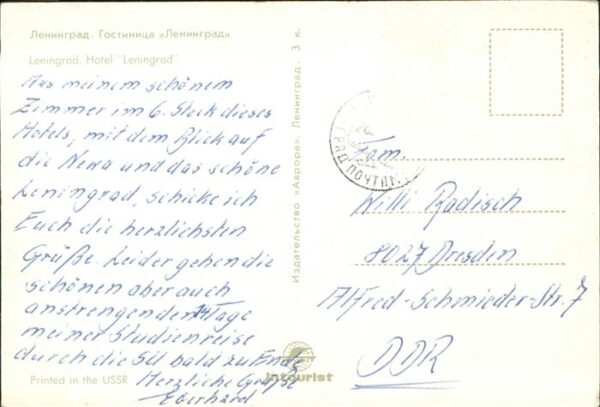 Ленинград. Гостиница «Ленинград»
Leningrad. Hotel "Leningrad"
Aus meinem schönem
Zimmer im 6. Stock dieses
Hotels, mit dem Blick auf
die Newa und das schöne
Leningrad, schicke ich
Euch die herzlichsten
Grüße. Leider gehen die
schönen aber auch
anstrengenden 14 Tage
meiner Studienreise
durch die SU bald zu Ende
Herzliche Grüße
Eberhard
Printed in the USSR
intourist
Издательство «Аврора». Ленинград. 3 к.
ПОЧТАМТ
Fam.
Willi Radisch
8027 Dresden
Alfred-Schmieder-Str. 7
DDR